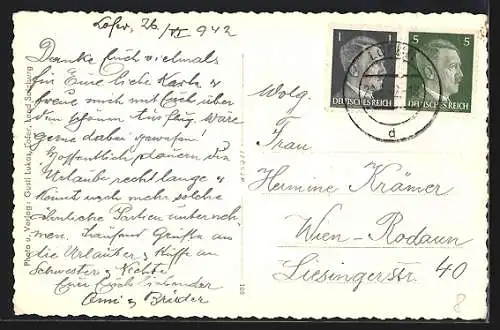 Lofer, 26/VI 942
Danke Euch vielmals
für Eure liebe Karte u
freue mich mit Euch über
den schönen Ausflug. Wäre
gerne dabei gewesen!
Hoffentlich dauern die
Urlaube recht lange u
könnt noch mehr solche
ähnliche Partien unterneh-
men. Tausend Grüße an
die Urlauber u Küsse an
Schwester u Nichte
Euer Euch liebender
u Bruder
Photo u. Verlag: Gusti Lukas, Lofer, Land Salzburg
1
1
DEUTSCHES REICH
5
DEUTSCHES REICH
d
Wolg.
Frau
Hermine Krämer
Wien-Rodaun
Liesingerstr 40
8